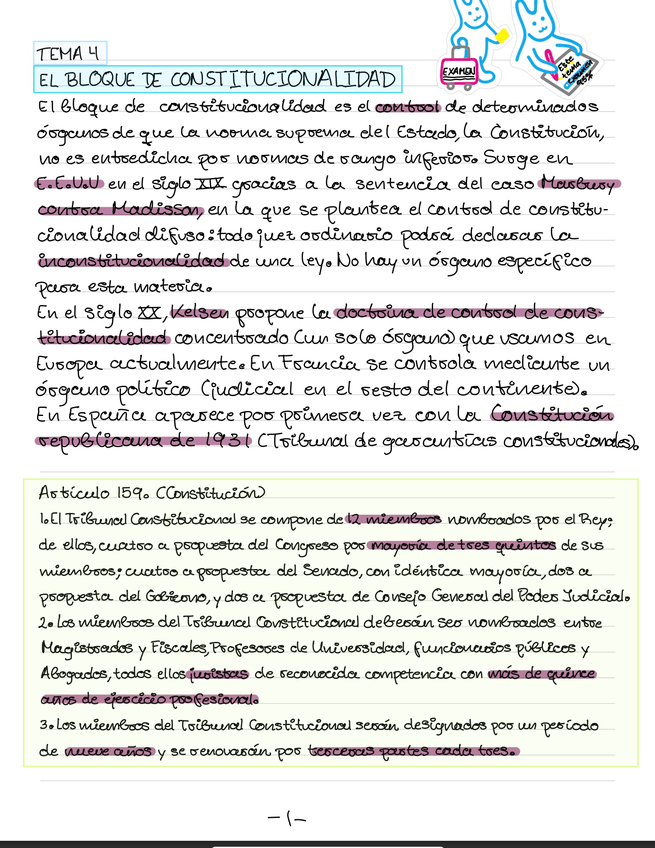 EXAMEN
Este
tema
TEMA 4
EL BLOQUE DE CONSTITUCIONALIDAD
El bloque de constitucionalidad es el control de determinados
órganos de que la norma suprema del Estado, la Constitución,
no es entredicha por normas de rango inferior. Surge en
E.E.U.U en el siglo XIX gracias a la sentencia del caso Marbury
contra Madisson, en la que se plantea el control de constitu-
cionalidad difuso: todo juez ordinario podrá declarar la
inconstitucionalidad de una ley. No hay un órgano específico
para esta materia.
En el siglo XX, Kelsen propone la doctrina de control de cons-
titucionalidad concentrado (un solo órgano) que usamos en
Europa actualmente. En Francia se controla mediante un
órgano político (judicial en el resto del continente).
En España aparece por primera vez con la Constitución
republicana de 1931 (Tribunal de garantías constitucionales).
Artículo 159. (Constitución)
1. El Tribunal Constitucional se compone de 12 miembros nombrados por el Rey;
de ellos, cuatro a propuesta del Congreso por mayoría de tres quintos de sus
miembros; cuatro a propuesta del Senado, con idéntica mayoría, dos a
propuesta del Gobierno, y dos a propuesta de Consejo General del Poder Judicial.
2. Los miembros del Tribunal Constitucional deberán ser nombrados entre
Magistrados y Fiscales, Profesores de Universidad, funcionarios públicos y
Abogados, todos ellos juristas de reconocida competencia con más de quince
años de ejercicio profesional.
3. Los miembros del Tribunal Constitucional serán designados por un período
de nueve años y se renovarán por terceras partes cada tres.
-1-